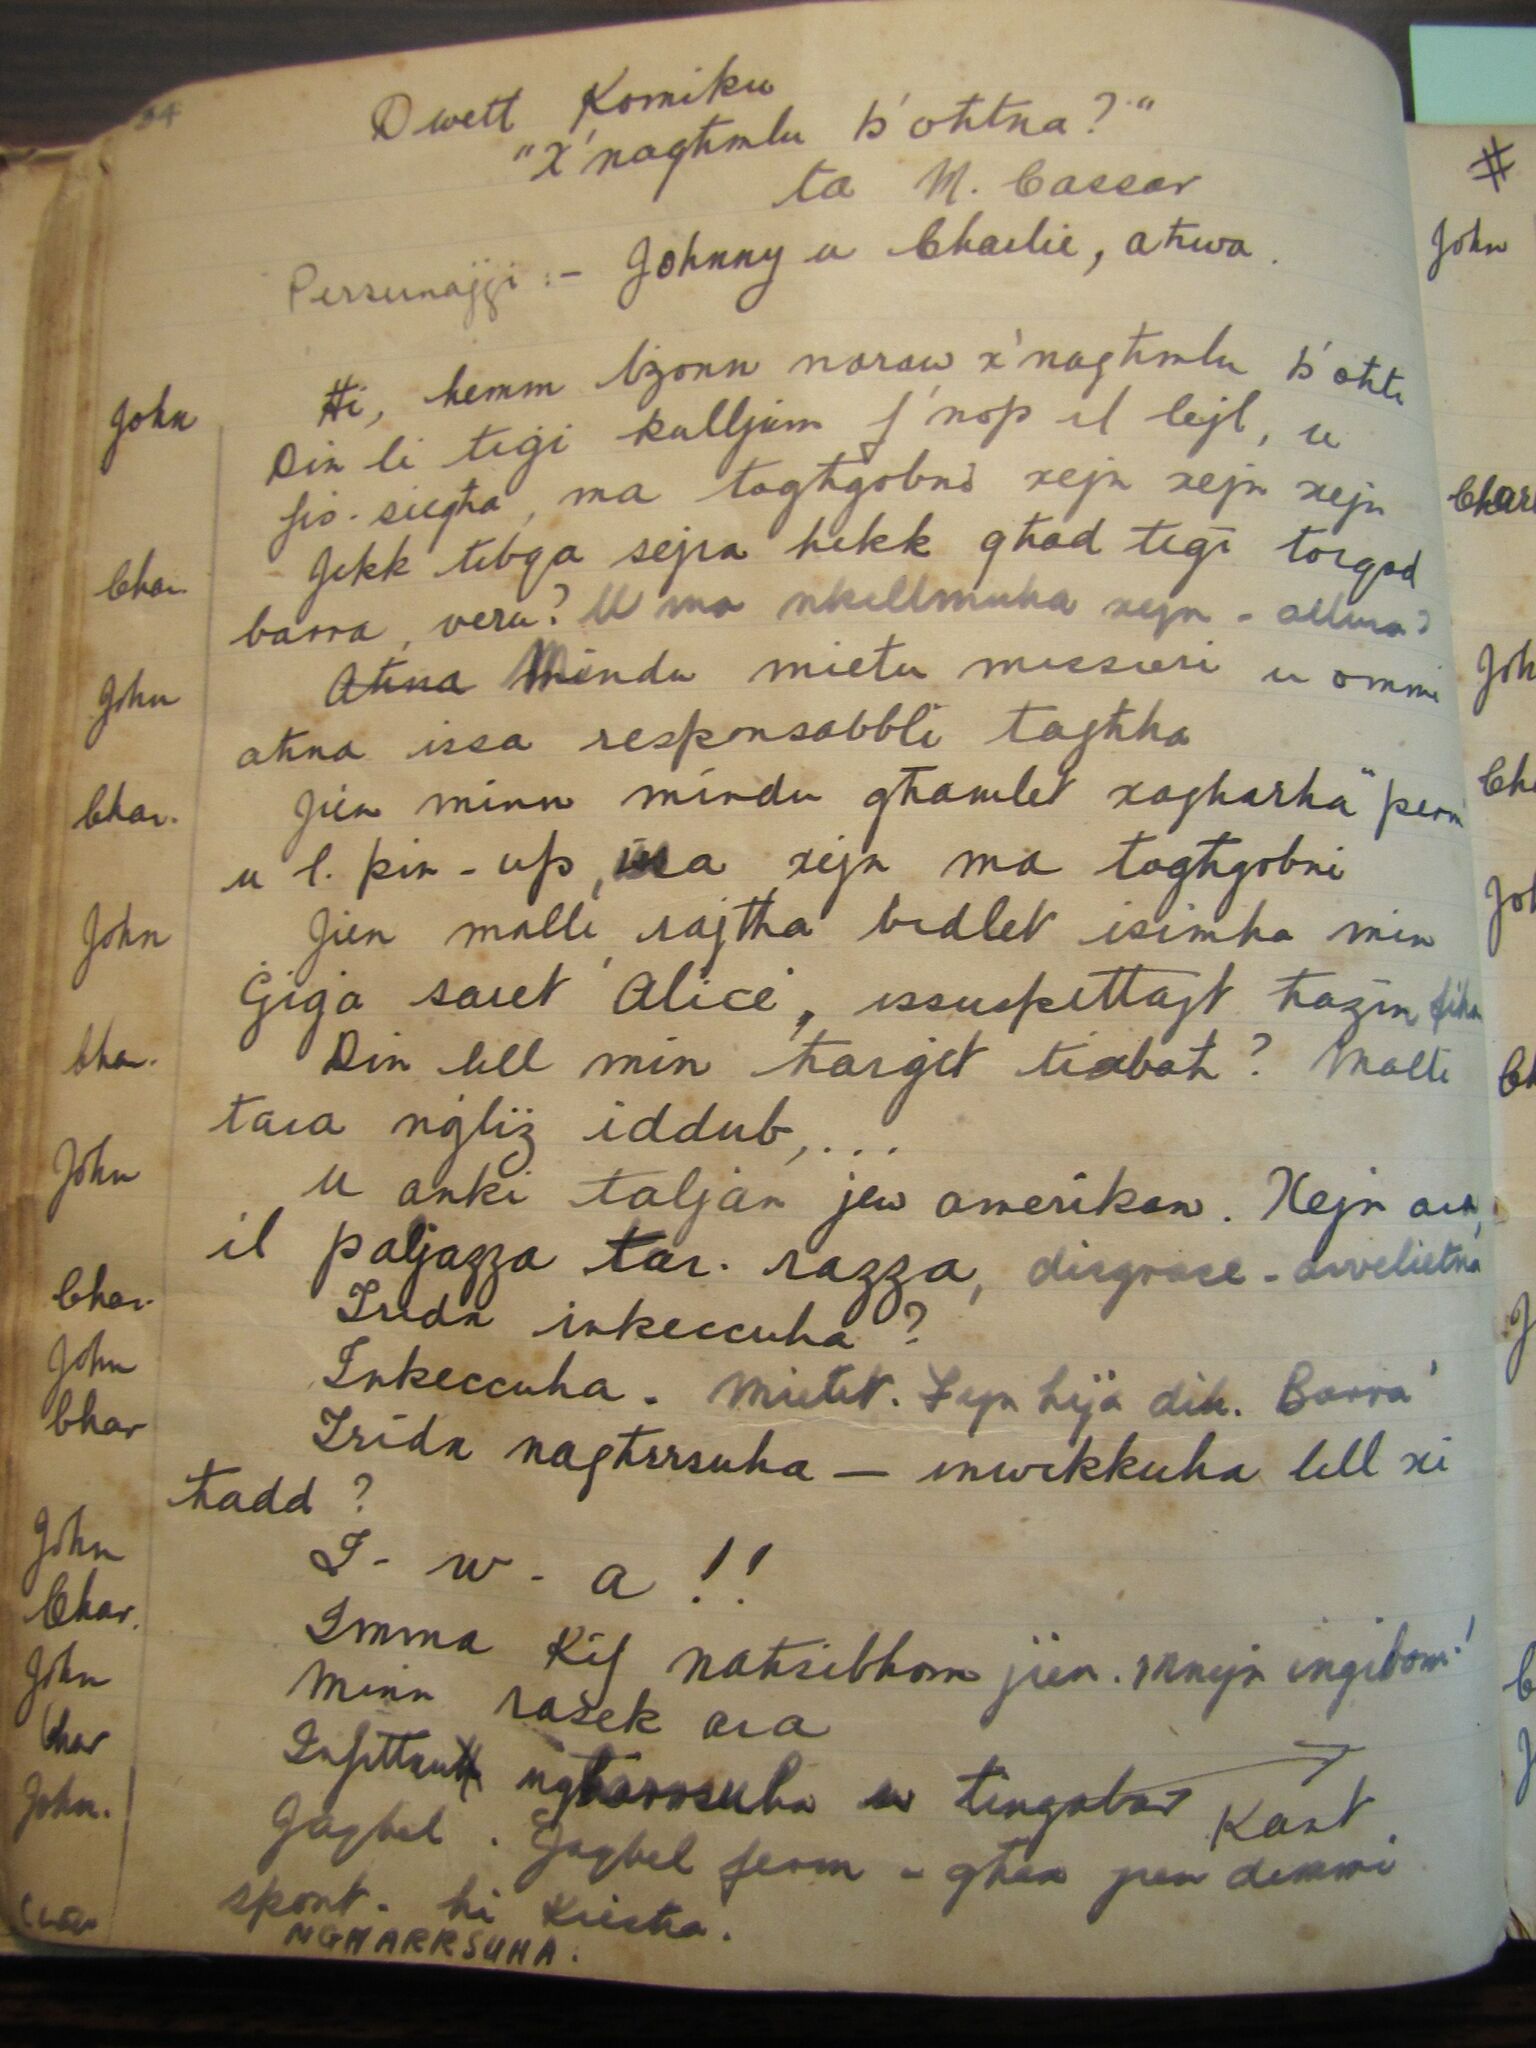 34
Dwett Komiku
"X'nagħmlu b'oħtna?"
ta M. Cassar
Persunaġġi :- Johnny u Charlie, aħwa.
John Hi, hemm bżonn naraw x'nagħmlu b'oħti
Din li tiġi kulljum f'nofs il lejl, u
fis-siegħa, ma togħġobni xejn xejn xejn
Char. Jekk tibqa sejra hekk għad tiġi torqod
barra, veru? U ma nkellmuha xejn - allura?
John Aħna Mindu mietu missieri u ommi
aħna issa responsabbli tagħha
Char. Jien minn mindu għamlet xagħarha "perm
u l. pin-up, issa xejn ma togħġobni
John Jien malli rajtha bidlet isimha min
Ġiġa saret Alice, issuspettajt ħażin fiha
Char. Din lill min ħarġet tixbaħ? Malli
tara nġliż iddub, ...
John U anki taljan jew amerikan. Xejn ara,
il paljazza tar-razza, disgrase - avvelietna
Char. Irridn inkeccuha?
John Inkeccuha. Mietet. Fejn hija dik. Barra!
Char Irridn nagħtrrsuha — inwekkuha lill xi
ħadd?
John I - w - a !!
Char. Imma kif naħsibhom jien. Mnejn inġibom!
John Minn rasek ara
Char Infittxu ngħarrsuha u tingabar
John. Jaqbel. Jaqbel ferm - għax jien demmi Kant
spont. hi Kiesħa.
Char
NGHARRSUHA.
#
John